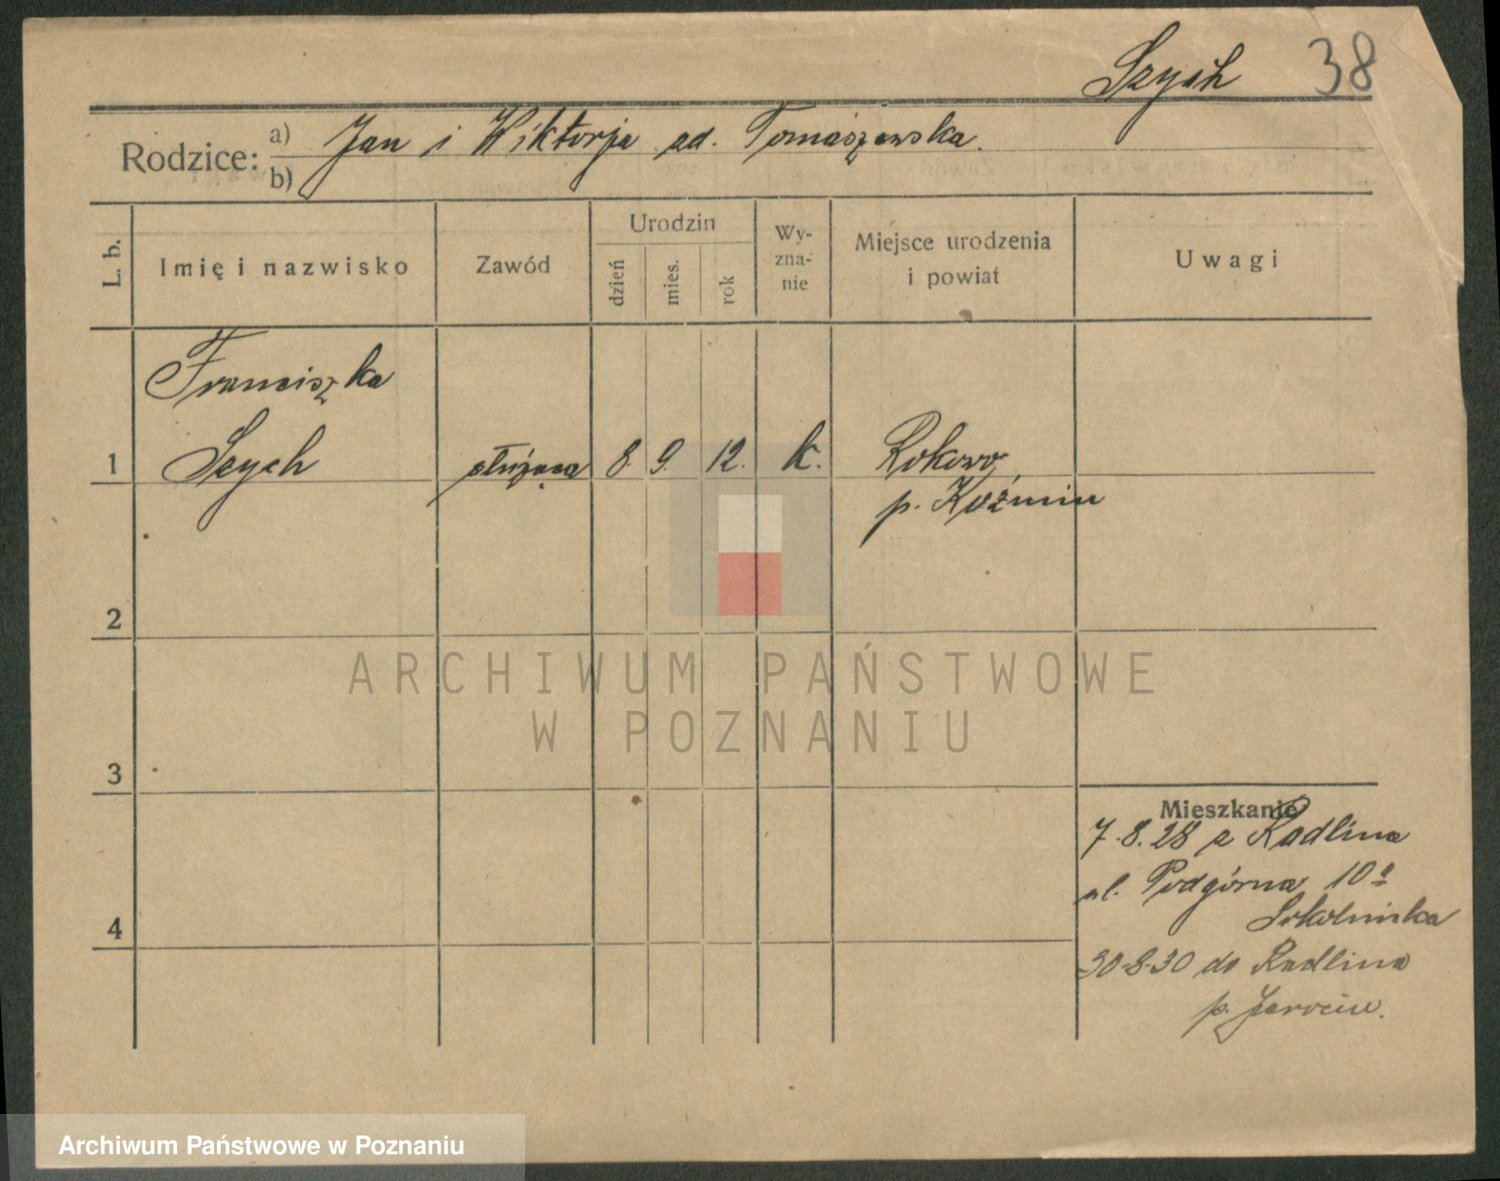 Szych 38
Rodzice: a) Jan i Wiktorja
b)
L. b. Imię i nazwisko Zawód Urodzin dzień mies. rok Wy-zna-nie Miejsce urodzenia i powiat Uwagi
Franciszka
1 Szych służąca 8. 9. 12. k. Rokowo
p. Koźmin
2
ARCHIWUM PAŃSTWOWE
W POZNANIU
3
Mieszkanie
7.8.28 z Radlina
ul. Podgórna 10a
4
30-8-30 do Radlina
p. Jarocin.
Archiwum Państwowe w Poznaniu